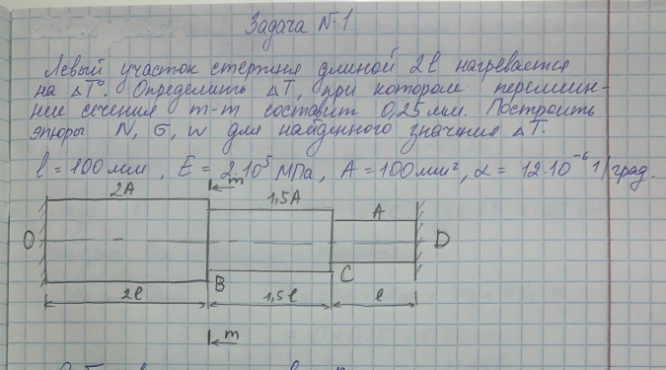 Задача №1.
Левый участок стержня длиной 2l нагревается
на ΔT°. Определить ΔT, при котором перемещен-
ние сечения m-m составит 0,25 мм. Построить
эпюры N, σ, w для найденного значения ΔT.
l = 100 мм, E = 2·10⁵ МПа, A = 100 мм², α = 12·10⁻⁶ 1/град.
2A
m
1,5A
A
O
D
B
C
2l
1,5l
l
m